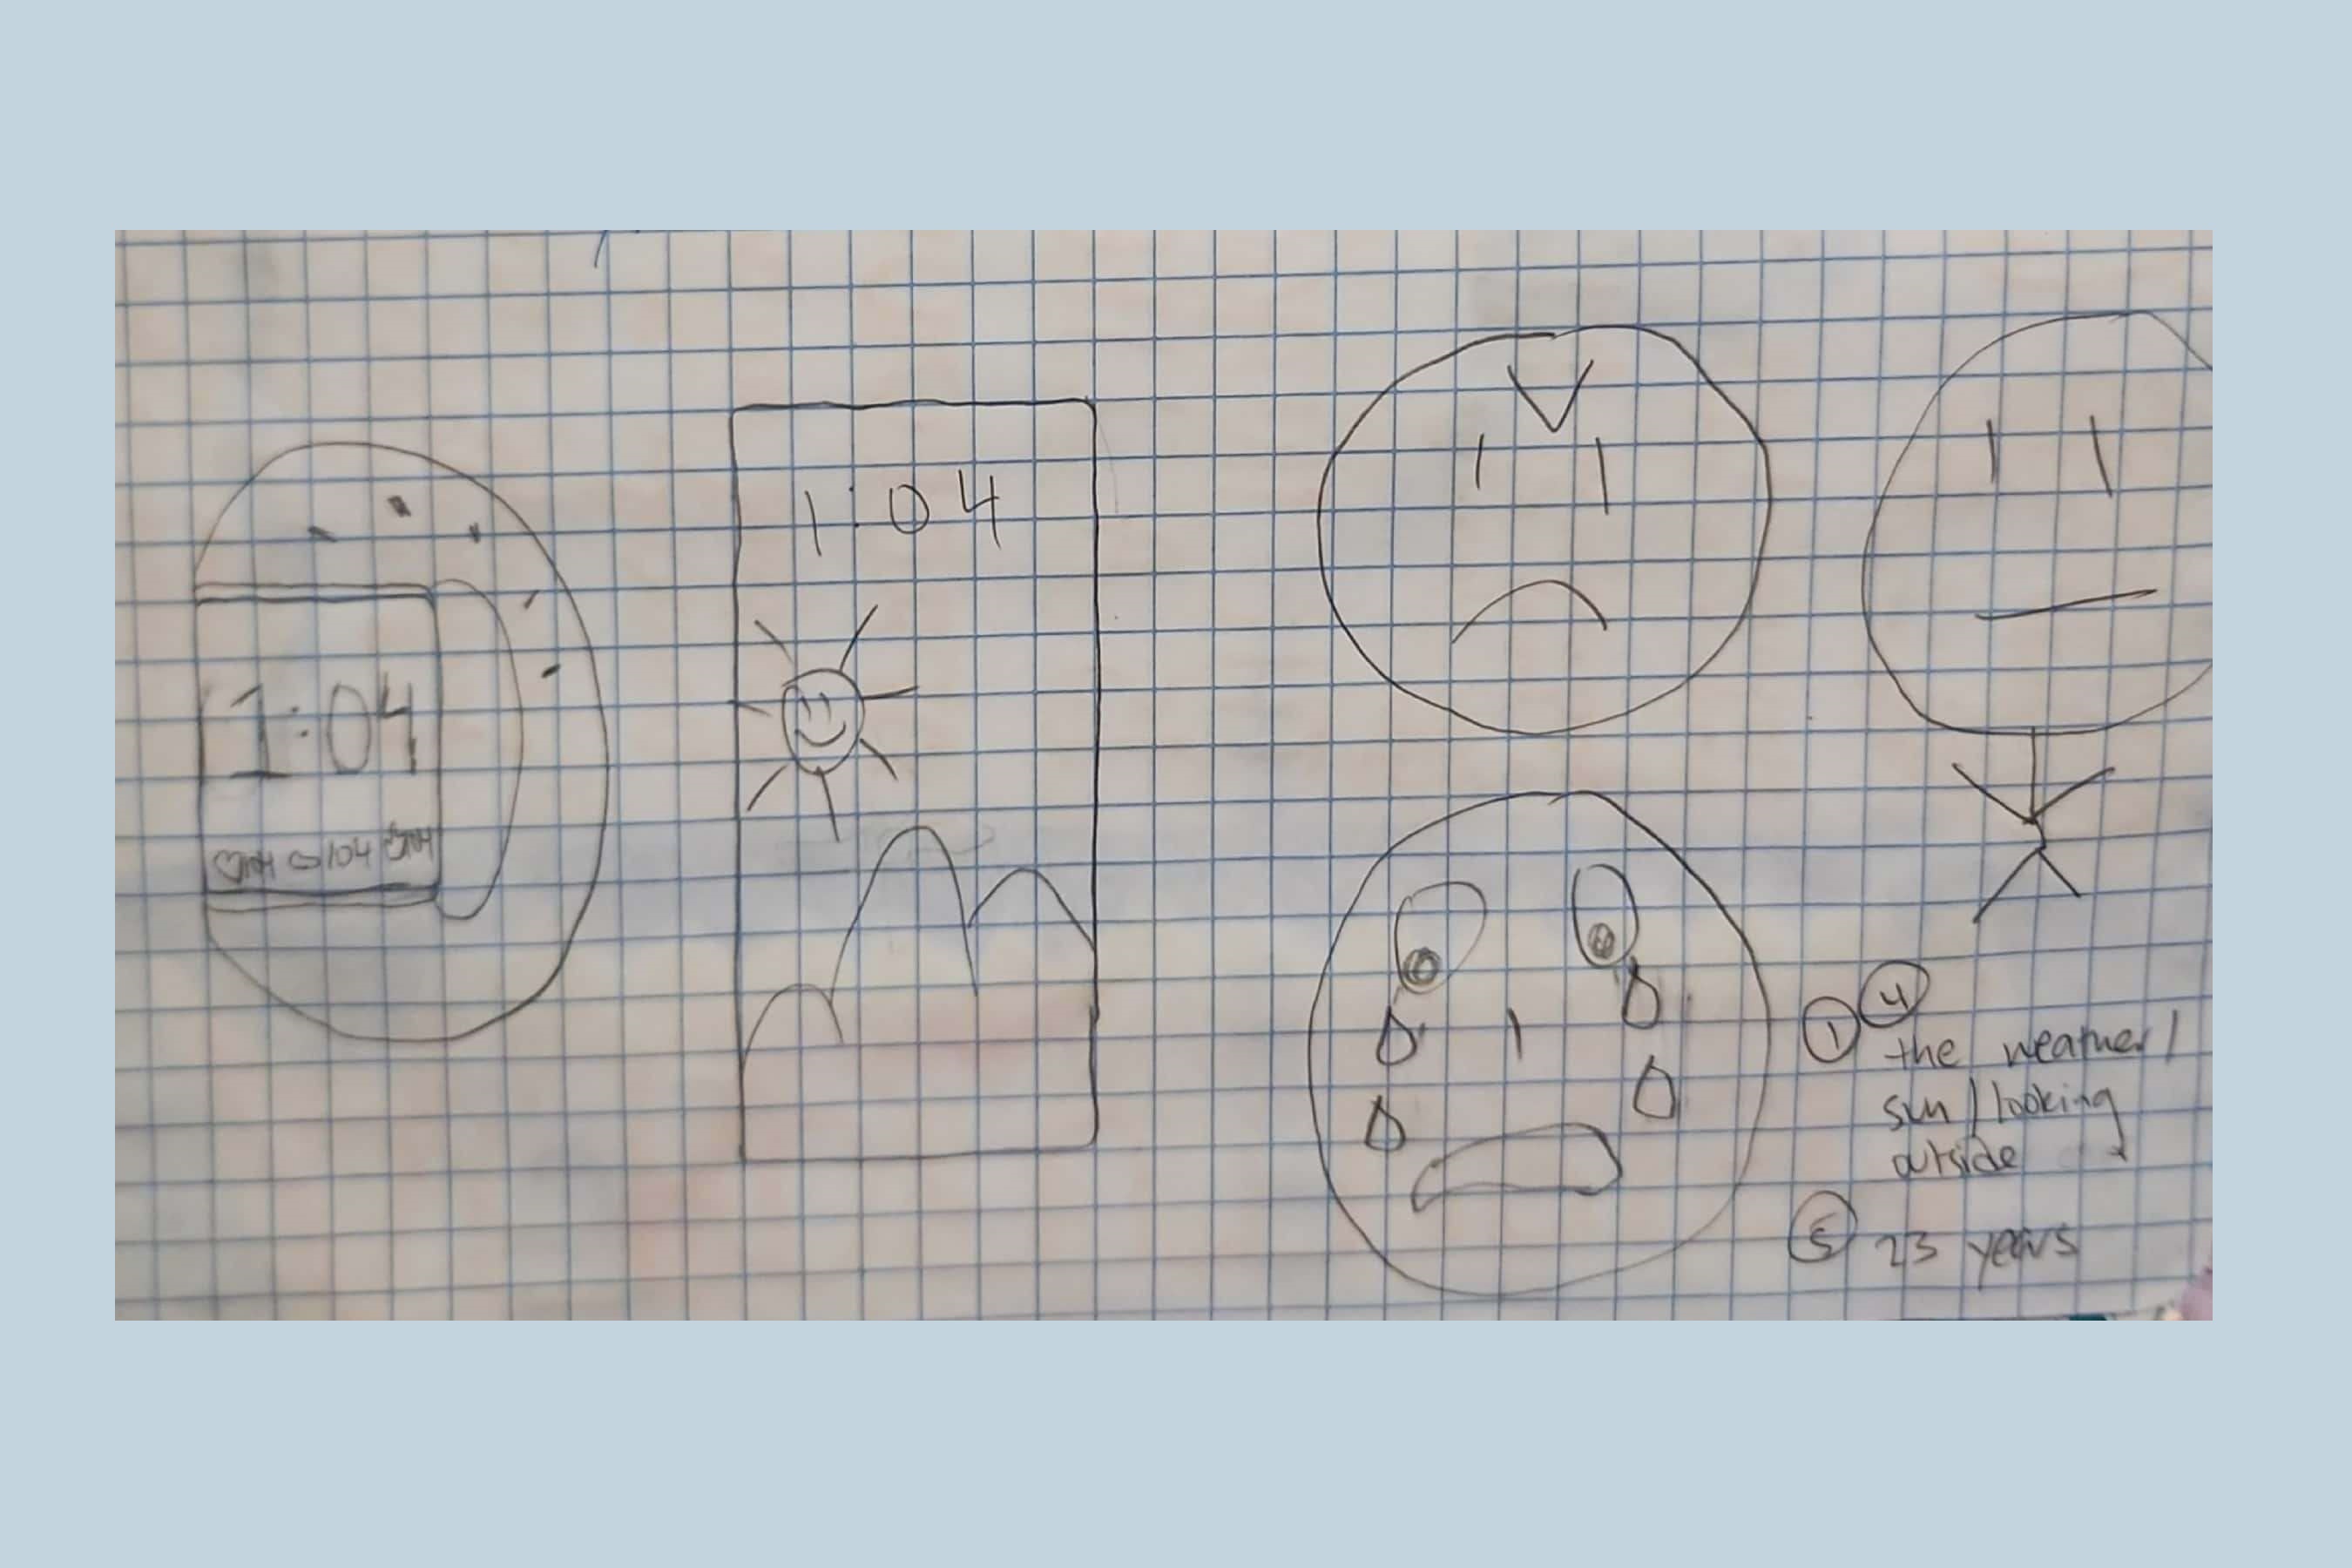 1:04
104 104 104
1:04
1 4
the weather/
sun/looking
outside
5 23 years